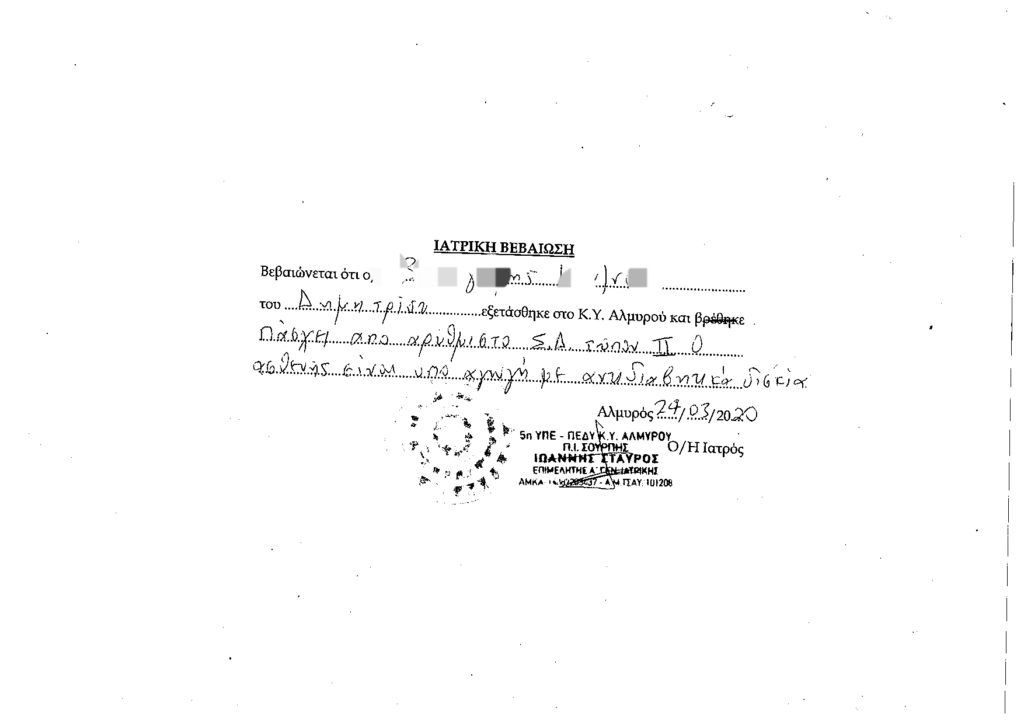 ΙΑΤΡΙΚΗ ΒΕΒΑΙΩΣΗ
Βεβαιώνεται ότι ο,
του Δημητρίου εξετάσθηκε στο Κ.Υ. Αλμυρού και βρέθηκε
Πάσχει απο αρύθμιστο Σ.Δ. τύπου ΙΙ Ο
ασθενής είναι υπο αγωγή με αντιδιαβητικά δισκία
Αλμυρός 24/03/2020
5η ΥΠΕ - ΠΕΔΥ Κ.Υ. ΑΛΜΥΡΟΥ
Π.Ι. ΣΟΥΡΠΗΣ Ο/Η Ιατρός
ΙΩΑΝΝΗΣ ΣΤΑΥΡΟΣ
ΕΠΙΜΕΛΗΤΗΣ Α΄ ΓΕΝ. ΙΑΤΡΙΚΗΣ
ΑΜΚΑ - Α Μ ΤΣΑΥ. 101208